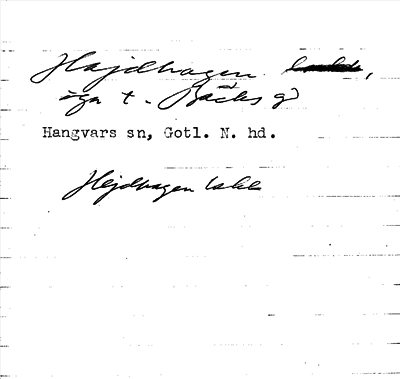 Hajdhagen
äga t. Bäcks gd
Hangvars sn, Gotl. N. hd.
Hejdhagen lakk